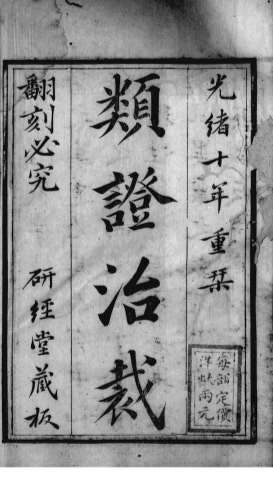 光緒十年重栞
類證治裁
翻刻必究
研經堂藏板
每部定價
洋𠯁兩元